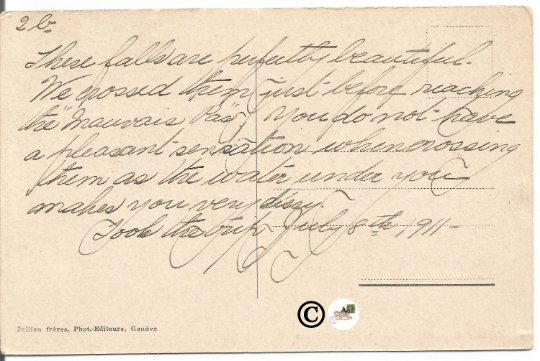 2b.
These falls are perfectly beautiful.
We crossed them just before reaching
the "Mauvais Pas". You do not have
a pleasant sensation when crossing
them as the water under you
makes you very dizzy.
Took the trip July 8th, 1911-
©
Jullien frères, Phot.-Editeurs, Genève